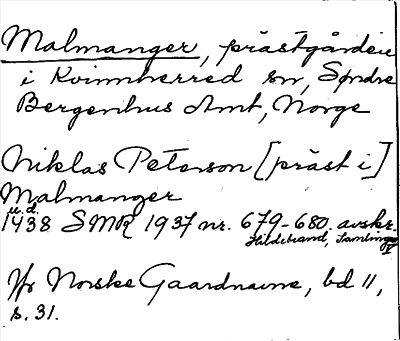 Malmanger, prästgården
i Kvinnherred sn, Søndre
Bergenhus Amt, Norge
Niklas Peterson [präst i]
Malmanger
u.d.
1438 SMR 1937 nr. 679-680. avskr.
Hildebrand, Samlingar
V
Jfr Norske Gaardnavne, bd 11,
s. 31.